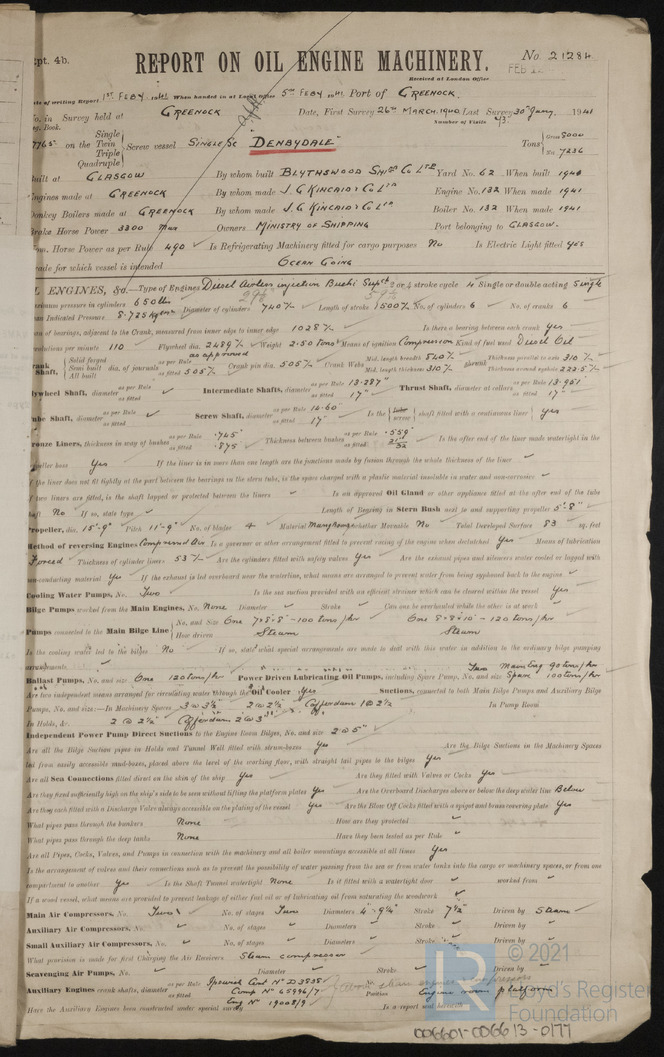 Rpt. 4b.
REPORT ON OIL ENGINE MACHINERY.
No. 21284
Received at London Office
FEB
Date of writing Report 1ST FEBY. 1941 When handed in at Local Office 5TH FEBY 1941 Port of GREENOCK.
No. in Survey held at GREENOCK Date, First Survey 26TH MARCH, 1940 Last Survey 30TH Jany. 1941
Reg. Book. Number of Visits 43
7765 on the Single Twin Triple Quadruple Screw vessel SINGLE SC "DENBYDALE" Tons Gross 8000 Net 7236
Built at GLASGOW By whom built BLYTHSWOOD SHIPG CO LTD Yard No. 62 When built 1940
Engines made at GREENOCK By whom made J. G. KINCAID & CO LTD Engine No. 132 When made 1941
Donkey Boilers made at GREENOCK By whom made J. G. KINCAID & CO LTD Boiler No. 132 When made 1941
Brake Horse Power 3300 Max Owners MINISTRY OF SHIPPING Port belonging to GLASGOW.
Nom. Horse Power as per Rule 490 Is Refrigerating Machinery fitted for cargo purposes No Is Electric Light fitted YES
Trade for which vessel is intended OCEAN GOING
OIL ENGINES, &c.—Type of Engines Diesel Airless injection Buchi Supct 2 or 4 stroke cycle 4 Single or double acting Single
Maximum pressure in cylinders 650 lbs Diameter of cylinders 740 m/m Length of stroke 1500 m/m No. of cylinders 6 No. of cranks 6
Mean Indicated Pressure 8.725 kgcm
Span of bearings, adjacent to the Crank, measured from inner edge to inner edge 1028 m/m Is there a bearing between each crank Yes
Revolutions per minute 110 Flywheel dia. 2489 m/m Weight 2.50 tons Means of ignition Compression Kind of fuel used Diesel Oil
Crank Shaft, Solid forged Semi built All built dia. of journals as per Rule as approved as fitted 505 m/m Crank pin dia. 505 m/m Crank Webs Mid. length breadth 840 m/m Mid. length thickness 310 m/m shrunk Thickness parallel to axis 310 m/m Thickness around eyehole 222.5 m/m
Flywheel Shaft, diameter as per Rule as fitted Intermediate Shafts, diameter as per Rule 13.287" as fitted 17" Thrust Shaft, diameter at collars as per Rule 13.951" as fitted 17"
Tube Shaft, diameter as per Rule as fitted Screw Shaft, diameter as per Rule 14.60" as fitted 17" Is the tube screw shaft fitted with a continuous liner Yes
Bronze Liners, thickness in way of bushes as per Rule .745" as fitted .875 Thickness between bushes as per Rule .559" as fitted Is the after end of the liner made watertight in the
propeller boss Yes If the liner is in more than one length are the junctions made by fusion through the whole thickness of the liner
If the liner does not fit tightly at the part between the bearings in the stern tube, is the space charged with a plastic material insoluble in water and non-corrosive
If two liners are fitted, is the shaft lapped or protected between the liners Is an approved Oil Gland or other appliance fitted at the after end of the tube
shaft No If so, state type Length of Bearing in Stern Bush next to and supporting propeller 5'-8"
Propeller, dia. 15'-9" Pitch 11'-9" No. of blades 4 Material Mang bronze whether Moveable No Total Developed Surface 83 sq. feet
Method of reversing Engines Compressed Air Is a governor or other arrangement fitted to prevent racing of the engine when declutched Yes Means of lubrication
Forced Thickness of cylinder liners 53 m/m Are the cylinders fitted with safety valves Yes Are the exhaust pipes and silencers water cooled or lagged with
non-conducting material Yes If the exhaust is led overboard near the waterline, what means are arranged to prevent water from being syphoned back to the engine
Cooling Water Pumps, No. Two Is the sea suction provided with an efficient strainer which can be cleared within the vessel Yes
Bilge Pumps worked from the Main Engines, No. None Diameter Stroke Can one be overhauled while the other is at work
Pumps connected to the Main Bilge Line No. and Size One 7x8x8"-100 tons/hr One 8x8x10"-120 tons/hr
How driven Steam Steam
Is the cooling water led to the bilges No If so, state what special arrangements are made to deal with this water in addition to the ordinary bilge pumping
arrangements Two Main Eng 90 tons/hr
Ballast Pumps, No. and size One 120 tons/hr Power Driven Lubricating Oil Pumps, including Spare Pump, No. and size Spare 100 tons/hr
Are two independent means arranged for circulating water through the Oil Cooler Yes Suctions, connected to both Main Bilge Pumps and Auxiliary Bilge
Pumps, No. and size:—In Machinery Spaces 3 @ 3½" 2 @ 2½" Cofferdam 1 @ 2½ In Pump Room
In Holds, &c. 2 @ 2½" Cofferdam 2 @ 3"
Independent Power Pump Direct Suctions to the Engine Room Bilges, No. and size 2 @ 5"
Are all the Bilge Suction pipes in Holds and Tunnel Well fitted with strum-boxes Yes Are the Bilge Suctions in the Machinery Spaces
led from easily accessible mud-boxes, placed above the level of the working floor, with straight tail pipes to the bilges Yes
Are all Sea Connections fitted direct on the skin of the ship Yes Are they fitted with Valves or Cocks Yes
Are they fixed sufficiently high on the ship's side to be seen without lifting the platform plates Yes Are the Overboard Discharges above or below the deep water line Below
Are they each fitted with a Discharge Valve always accessible on the plating of the vessel Yes Are the Blow Off Cocks fitted with a spigot and brass covering plate Yes
What pipes pass through the bunkers None How are they protected
What pipes pass through the deep tanks None Have they been tested as per Rule
Are all Pipes, Cocks, Valves, and Pumps in connection with the machinery and all boiler mountings accessible at all times Yes
Is the arrangement of valves and their connections such as to prevent the possibility of water passing from the sea or from water tanks into the cargo or machinery spaces, or from one
compartment to another Yes Is the Shaft Tunnel watertight None Is it fitted with a watertight door worked from
If a wood vessel, what means are provided to prevent leakage of either fuel oil or of lubricating oil from saturating the woodwork
Main Air Compressors, No. Two No. of stages Two Diameters 4"-9¼" Stroke 7½" Driven by Steam
Auxiliary Air Compressors, No. No. of stages Diameters Stroke Driven by
Small Auxiliary Air Compressors, No. No. of stages Diameters Stroke Driven by
What provision is made for first Charging the Air Receivers Steam compressor
Scavenging Air Pumps, No. Diameter Stroke Driven by
Auxiliary Engines crank shafts, diameter as per Rule as fitted Ipswich Cert No D3535 Comp No 45996/7 Eng No 19008/9 Position Engine room platform
Have the Auxiliary Engines been constructed under special survey Is a report sent herewith
© 2021
LR
Lloyd's Register
Foundation
006601-006613-0177